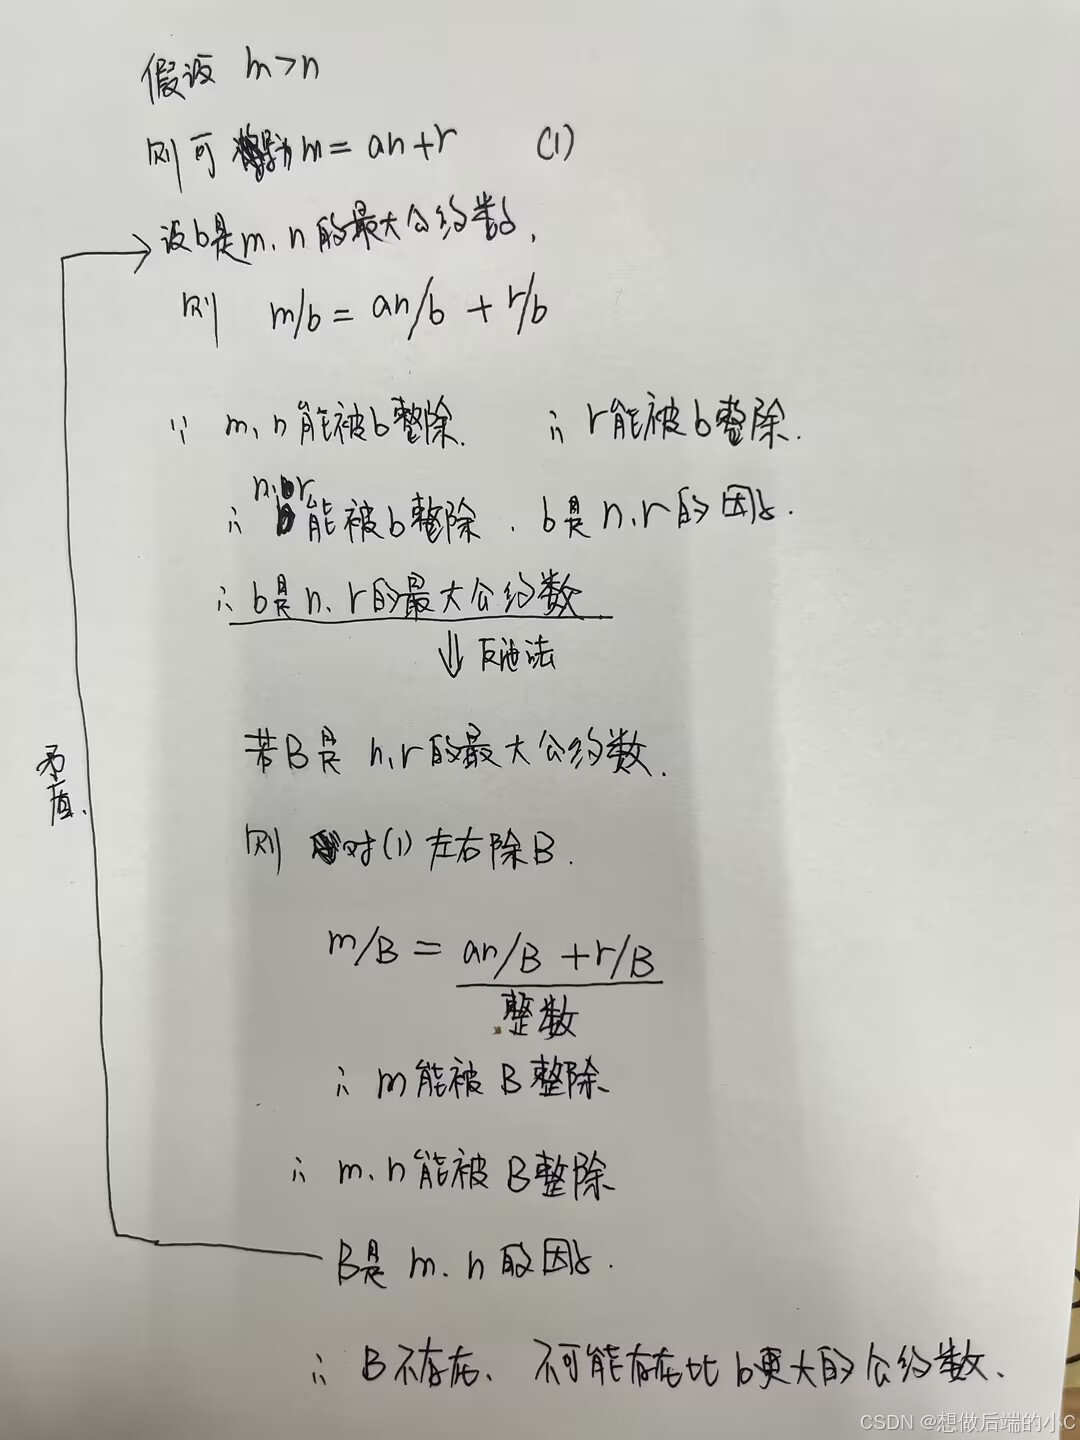 假设 m>n
则可 m=an+r (1)
设b是m、n的最大公约数,
则 m/b = an/b + r/b
∵ m、n能被b整除. ∴ r能被b整除.
n、r
∴ 能被b整除. b是n、r的因子.
∴ b是n、r的最大公约数
⇓ 反证法
若B是n,r的最大公约数.
矛盾.
则 对(1)左右除B.
m/B = an/B + r/B
整数
∴ m能被B整除
∴ m、n能被B整除
B是m、n的因子.
∴ B不存在、不可能存在比b更大的公约数.
CSDN @想做后端的小C